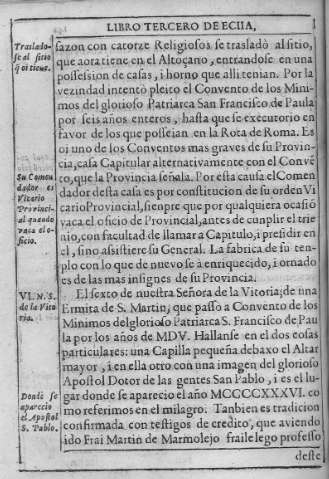 LIBRO TERCERO DE ECIIA,
Traslado-
se al sitio
q̃ oi tiene.
sazon con catorze Religiosos se trasladò al sitio,
que aora tiene en el Altoçano, entrandose en una
possession de casas, i horno que alli tenian. Por la
vezindad intentò pleito el Convento de los Mini-
mos del glorioso Patriarca San Francisco de Paula
por seis años enteros, hasta que se executorio en
favor de los que posseian en la Rota de Roma. Es
oi uno de los Conventos mas graves de su Provin-
cia, casa Capitular alternativamente con el Convẽ
Su Comen
dador es
Vicario
Provincial
al quando
vaca el o-
ficio.
to, que la Provincia señala. Por esta causa el Comen
dador desta casa es por constitucion de su orden Vi
cario Provincial, sienpre que por qualquiera ocasiõ
vaca el oficio de Provincial, antes de cunplir el trie
nio, con facultad de llamar a Capitulo, i presidir en
el, sino assistiere su General. La fabrica de su ten-
plo con lo que de nuevo se à enriquecido, i ornado
es de las mas insignes de su Provincia.
VI. N. S.
de la Vito
ria.
El sexto de nuestra Señora de la Vitoria; de una
Ermita de S. Martin, que passo a Convento de los
Minimos del glorioso Patriarca S. Francisco de Pau
la por los años de MDV. Hallanse en el dos cosas
particulares: una Capilla pequeña debaxo el Altar
mayor, i en ella otro con una imagen del glorioso
Apostol Dotor de las gentes San Pablo, i es el lu-
Donde se
aparecio
el Apostol
S. Pablo.
gar donde se aparecio el año MCCCCXXXVI. co
mo referimos en el milagro. Tanbien es tradicion
confirmada con testigos de credito, que aviendo
ido Frai Martin de Marmolejo fraile lego professo
deste